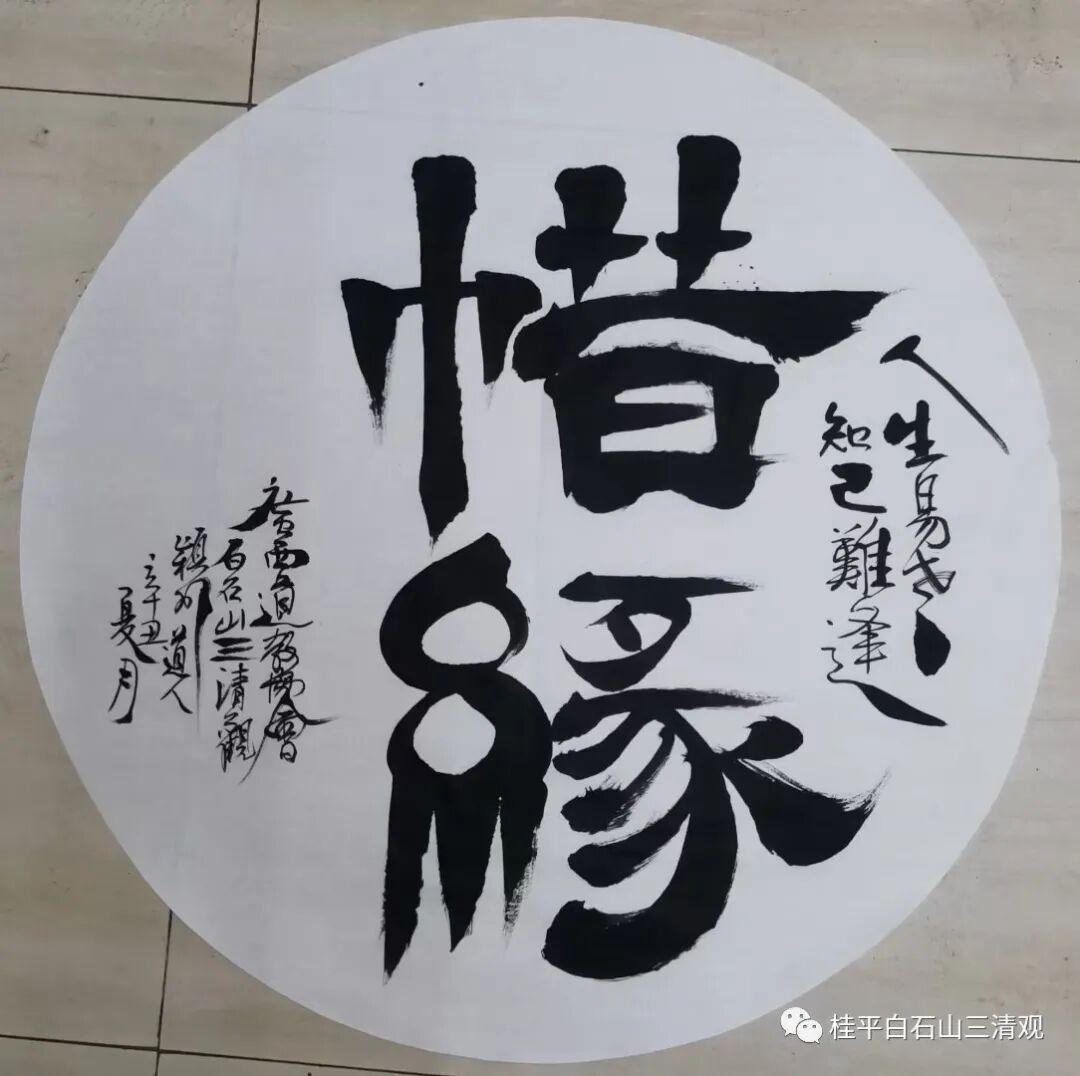 惜緣
人生易老
知己難逢
廣西道教協會
白石山三清觀
穎川道人
辛丑
夏月
桂平白石山三清观